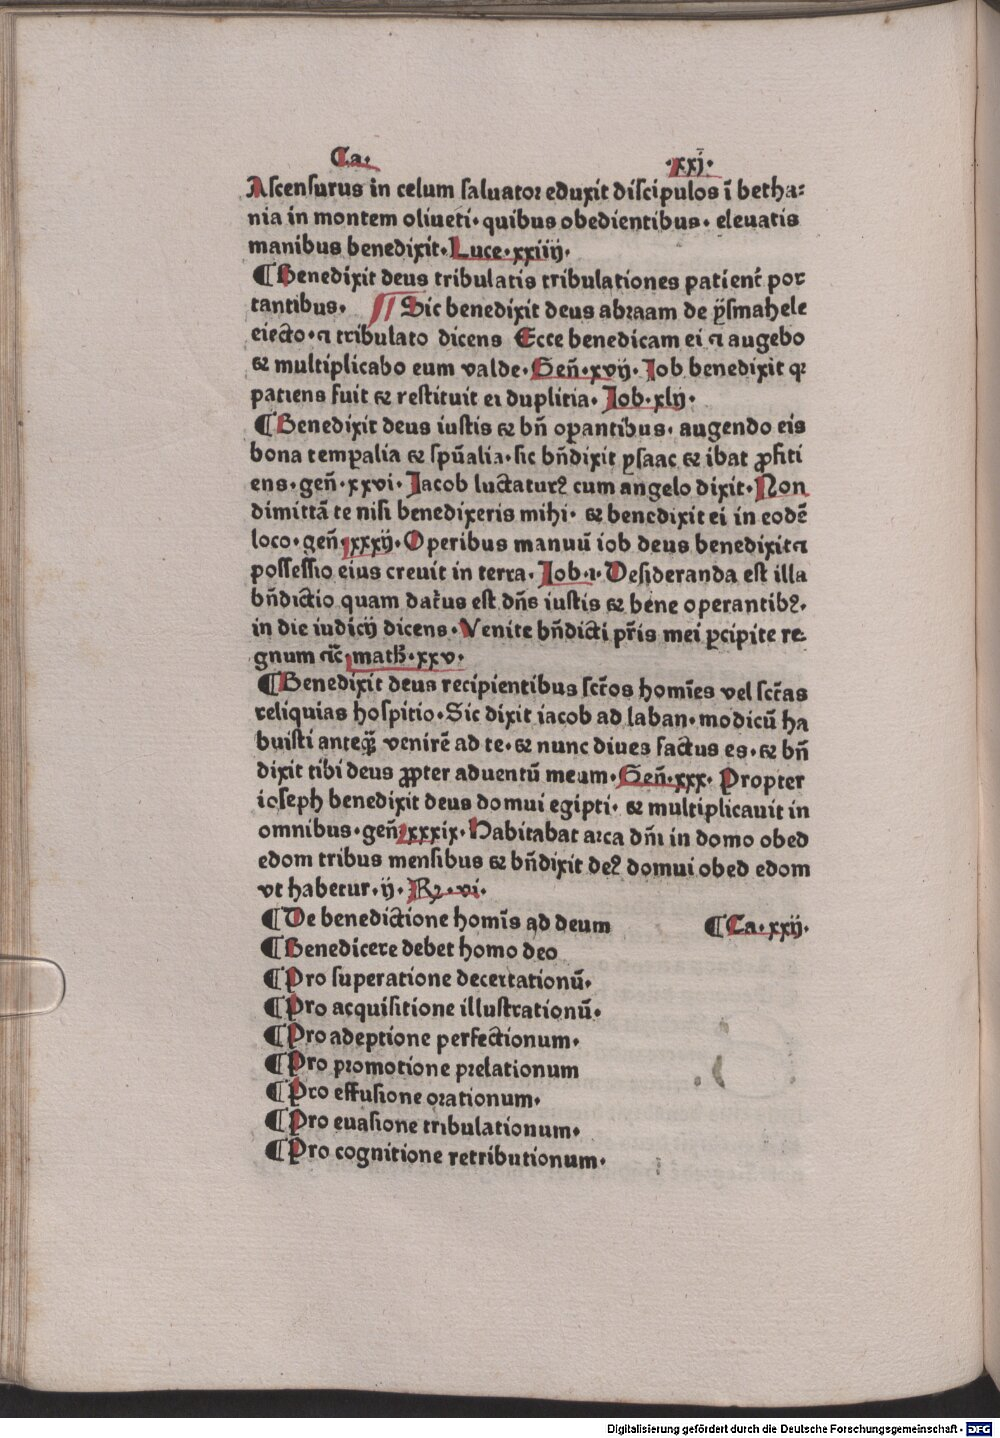 Ca. .xxī.
Ascensurus in celum saluator eduxit discipulos ī betha-
nia in montem oliueti. quibus obedientibus. eleuatis
manibus benedixit. Luce. xxiiij.
¶ Benedixit deus tribulatis tribulationes patienť por
tantibus. ¶ Sic benedixit deus abraam de ysmahele
eiecto. ⁊ tribulato dicens Ecce benedicam ei ⁊ augebo
& multiplicabo eum valde. Geñ. xvij. Iob benedixit qꝛ
patiens fuit & restituit ei duplitia. Iob. xlij.
¶ Benedixit deus iustis & bñ oꝑantibus. augendo eis
bona temꝑalia & spũalia. sic bñdixit ysaac & ibat ꝓfiti
ens. geñ. xxvi. Iacob luctaturꝰ cum angelo dixit. Non
dimittã te nisi benedixeris mihi. & benedixit ei in eodẽ
loco. geñ. xxxij. Operibus manuũ iob deus benedixit ⁊
possessio eius creuit in terra. Iob. 1. Desideranda est illa
bñdictio quam daťus est dñs iustis & bene operantibꝰ.
in die iudicij dicens. Venite bñdicti pr̃is mei ꝑcipite re
gnum ⁊c̃ math. xxv.
¶ Benedixit deus recipientibus scťos homĩes vel scťas
reliquias hospitio. Sic dixit iacob ad laban. modicũ ha
buisti anteqꝫ̃ venirẽ ad te. & nunc diues factus es. & bñ
dixit tibi deus ꝓpter aduentũ meum. Geñ. xxx. Propter
ioseph benedixit deus domui egipti. & multiplicauit in
omnibus. geñ. xxxix. Habitabat arca dñi in domo obed
edom tribus mensibus & bñdixit deꝰ domui obed edom
vt habetur. ij. Rꝫ. vi.
¶ De benedictione homĩs ad deum ¶ Ca. xxij.
¶ Benedicere debet homo deo
¶ Pro superatione decertationũ.
¶ Pro acquisitione illustrationũ.
¶ Pro adeptione perfectionum.
¶ Pro promotione prelationum
¶ Pro effusione orationum.
¶ Pro euasione tribulationum.
¶ Pro cognitione retributionum.
Digitalisierung gefördert durch die Deutsche Forschungsgemeinschaft - DFG